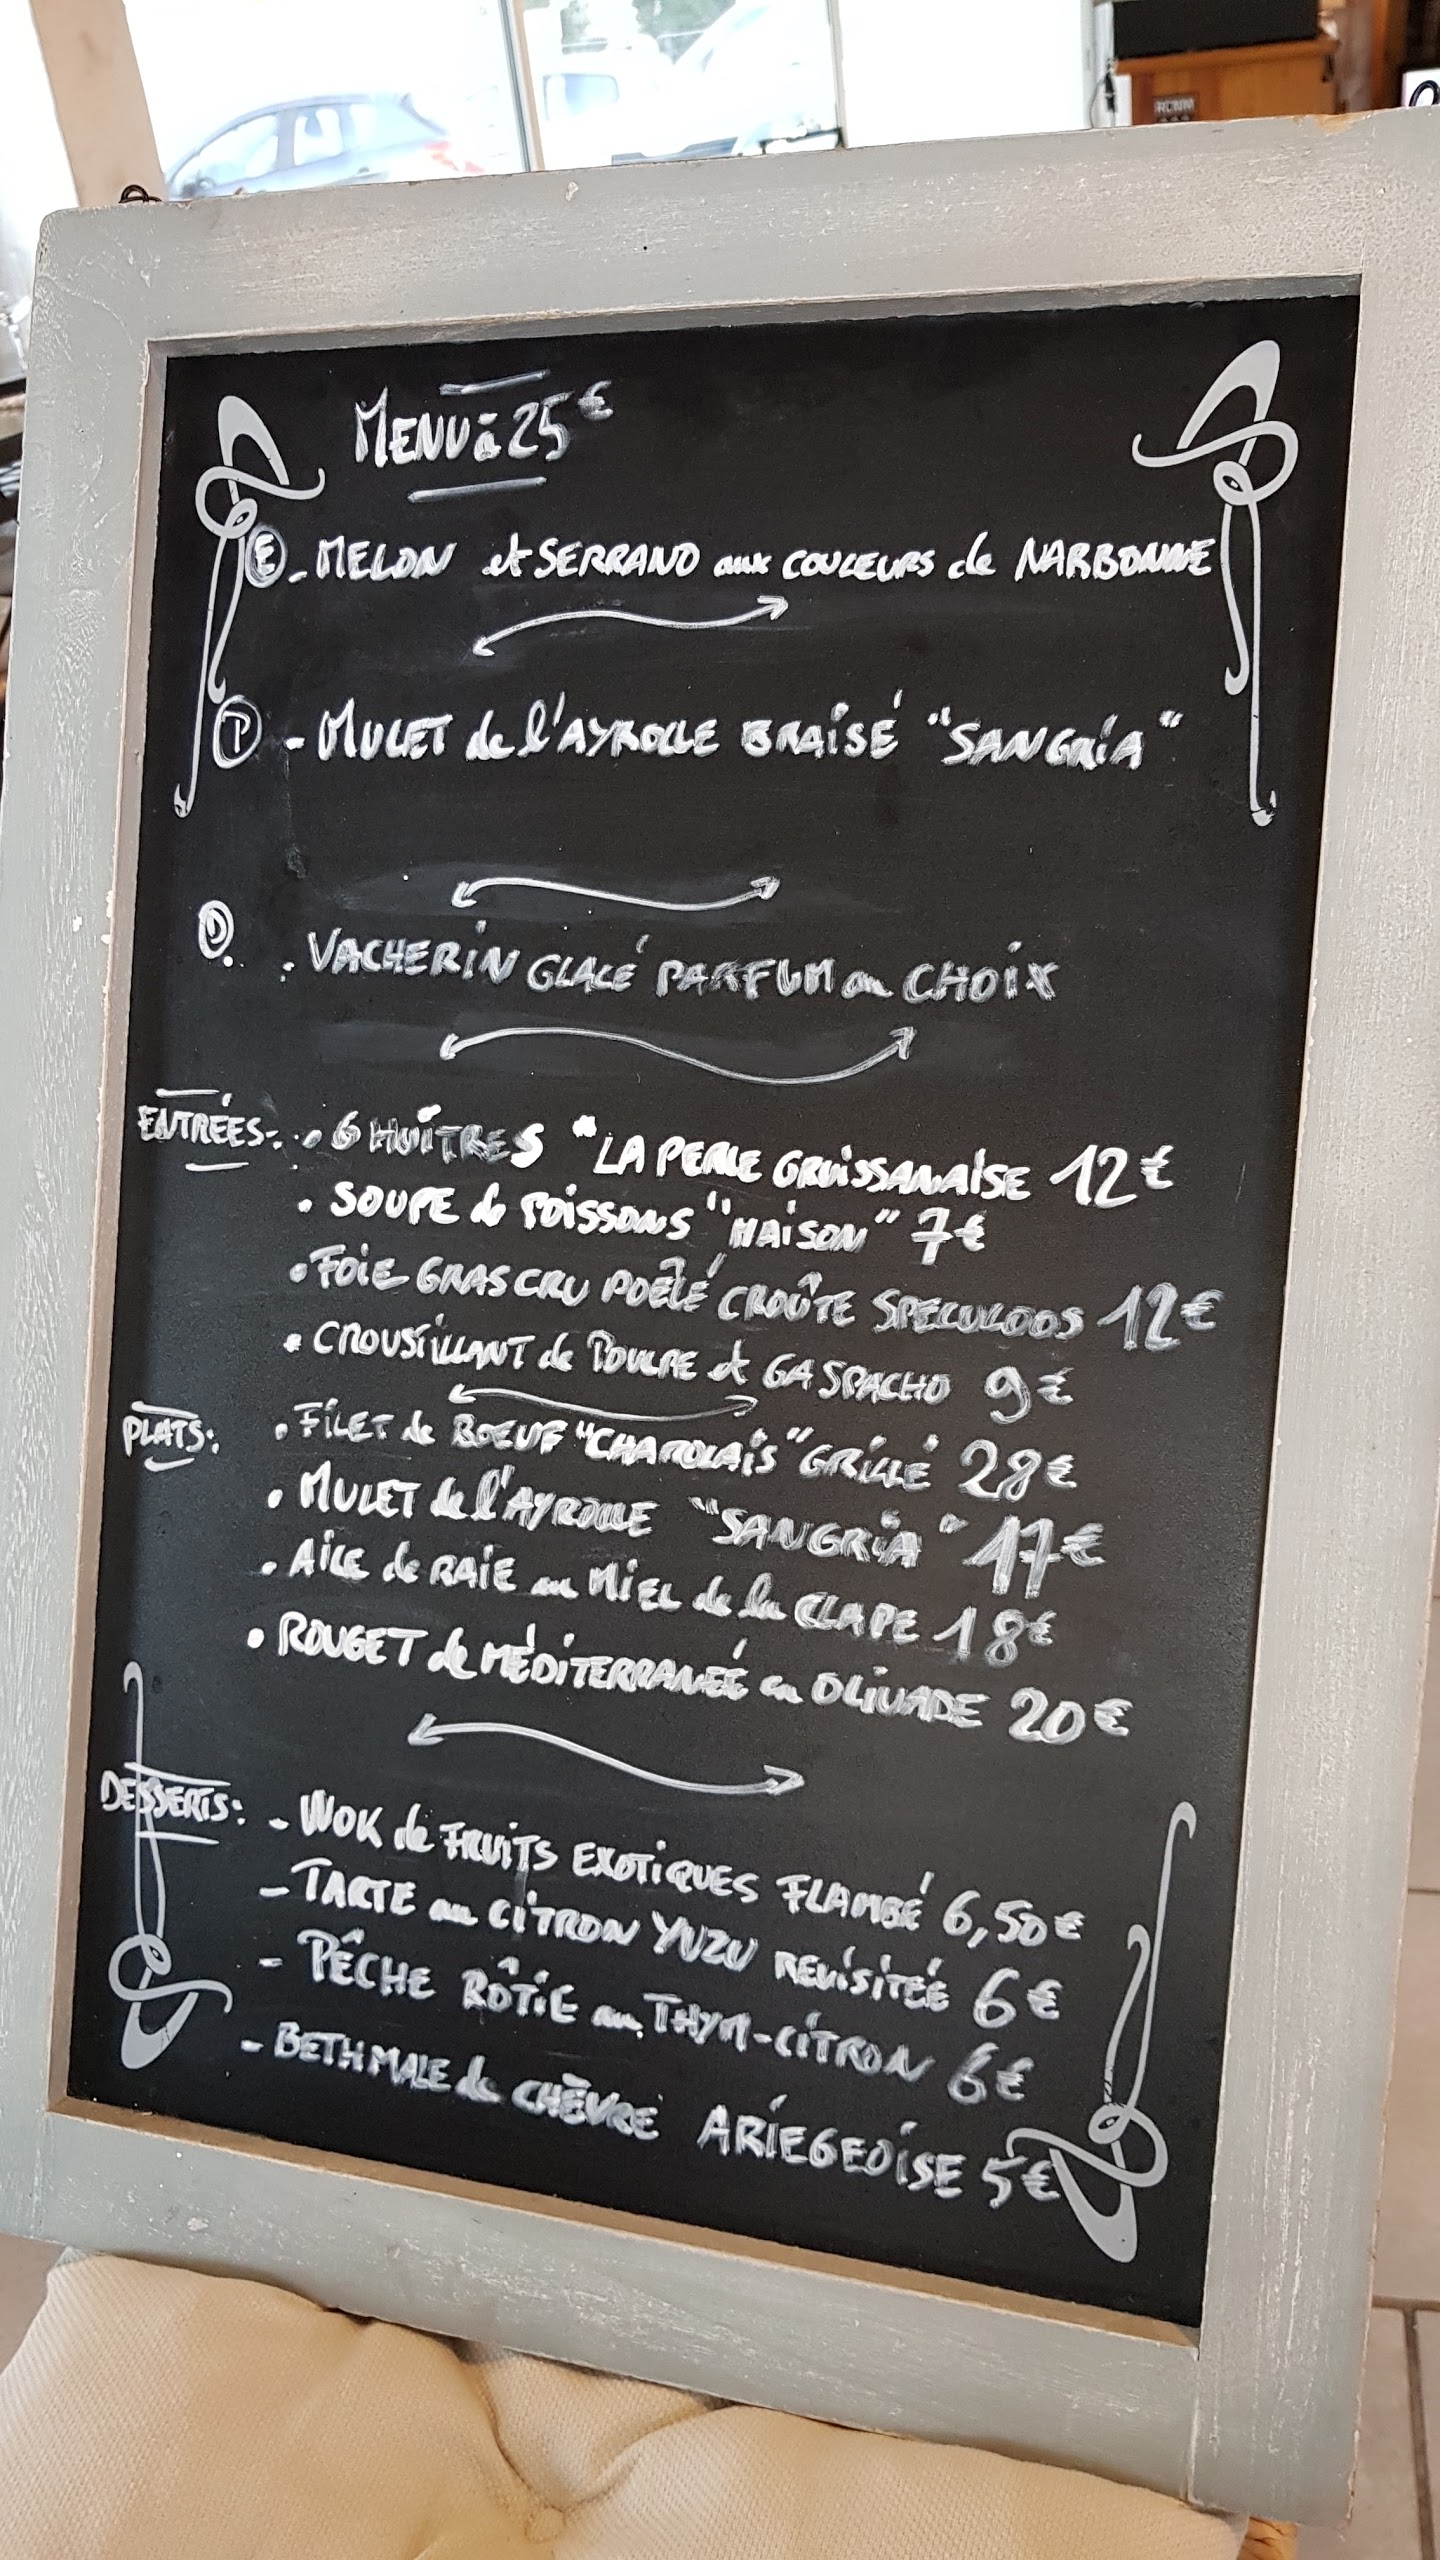 RCNM
MENU à 25€
E - MELON et SERRANO aux COULEURS de NARBONNE
P - MULET de l'AYROLLE BRAISÉ "SANGRIA"
D. . VACHERIN GLACÉ PARFUM au CHOIX
ENTRÉES: • 6 HUÎTRES "LA PERLE GRUISSANAISE 12€
• SOUPE de POISSONS "MAISON" 7€
• FOIE GRAS CRU POÊLÉ CROÛTE SPECULOOS 12€
• CROUSTILLANT de POULPE et GASPACHO 9€
PLATS: • FILET de BOEUF "CHAROLAIS" GRILLÉ 28€
• MULET de l'AYROLLE "SANGRIA" 17€
• AILE de RAIE au MIEL de la CLAPE 18€
• ROUGET de MÉDITERRANEÉ en OLIVADE 20€
DESSERTS: - WOK de FRUITS EXOTIQUES FLAMBÉ 6,50€
- TARTE au CITRON YUZU REVISITEÉ 6€
- PÊCHE RÔTIE au THYM-CITRON 6€
- BETHMALE de CHÈVRE ARIEGEOISE 5€